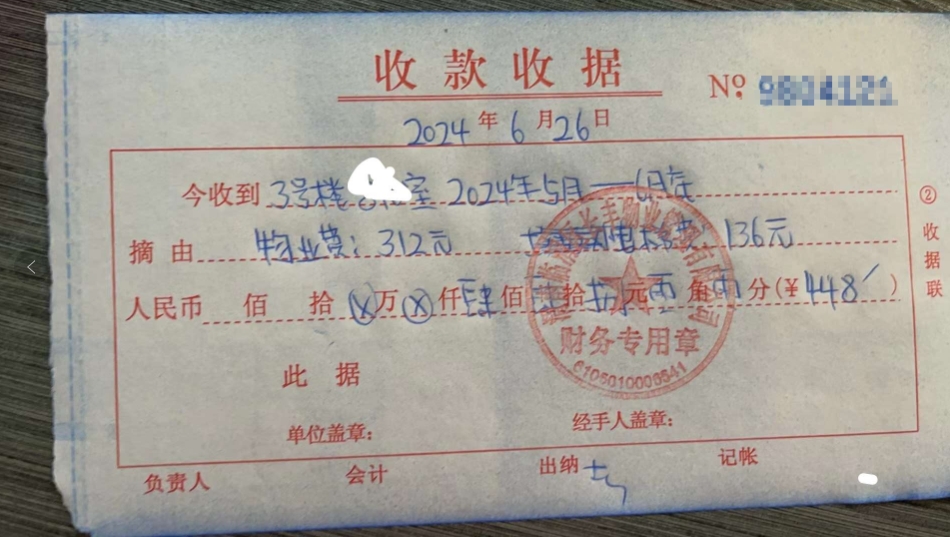 收款收据
No. 9804121
2024年6月26日
今收到 3号楼 室 2024年5月——6月
摘由 物业费：312元 136元
人民币 佰 拾ⓧ万ⓧ仟肆佰肆拾 元 角 分(￥448/)
财务专用章
6105010006541
此据
单位盖章： 经手人盖章：
负责人 会计 出纳 记帐
②收据联